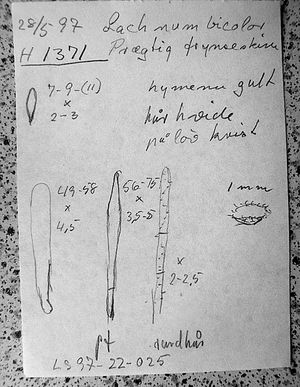 28/5-97 Lachnum bicolor
H 1371 Prægtig frynseskive
7-9-(11)
x
2-3
hymenu gult
hår hvide
på løv kvist
49-58
x
4,5
56-75
x
3,5-5
x
2-2,5
1 mm
randhår
LS97-22-025